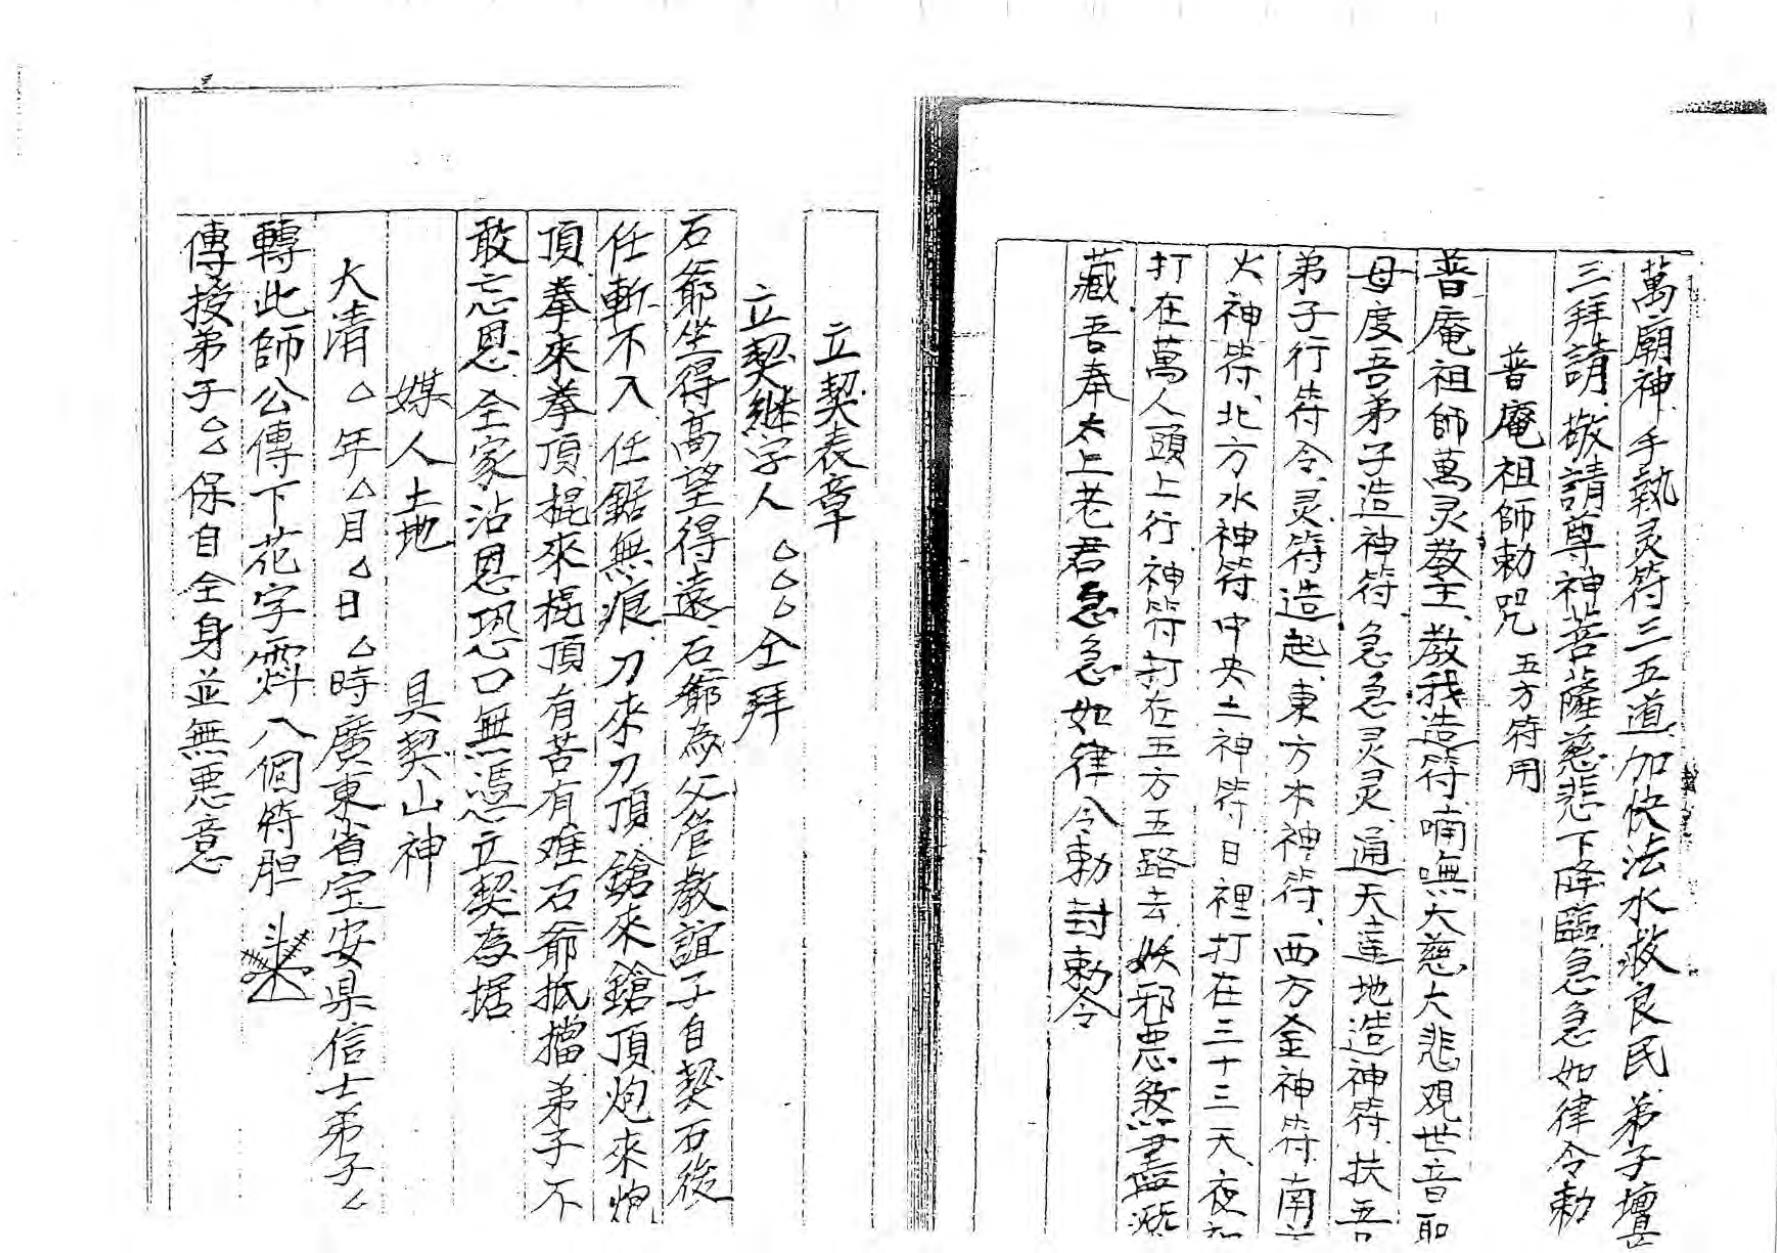 萬廟神手執灵符三五道加快法水救良民弟子壇
三拜請敬請尊神菩薩慈悲下降臨急急如律令勅
普庵祖師勅咒 五方符用
普庵祖師萬灵教主教我造符喃嘸大慈大悲观世音
母度吾弟子造神符急急灵灵通天達地造神符扶吾
弟子行符令灵符造起東方木神符西方金神符南
火神符北方水神符中央土神符日裡打在三十三天夜
打在萬人頭上行神符打在五方五路去妖邪悪煞盡
藏吾奉太上老君急急如律令勅封勅令
立契表章
立契継字人△△△仝拜
石爺坐得高望得遠石爺為父管教誼子自契石後
任斬不入任鋸無痕刀來刀頂鎗來鎗頂炮來炮
頂拳來拳頂棍來棍頂有苦有难石爺抵擋弟子不
敢忘恩全家沾恩恐口無憑立契為据
媒人土地 具契山神
大清△年△月△日△時廣東省宝安県信士弟子△
轉此師公傳下花字 八個符胆
傳授弟子△△保自全身並無悪意